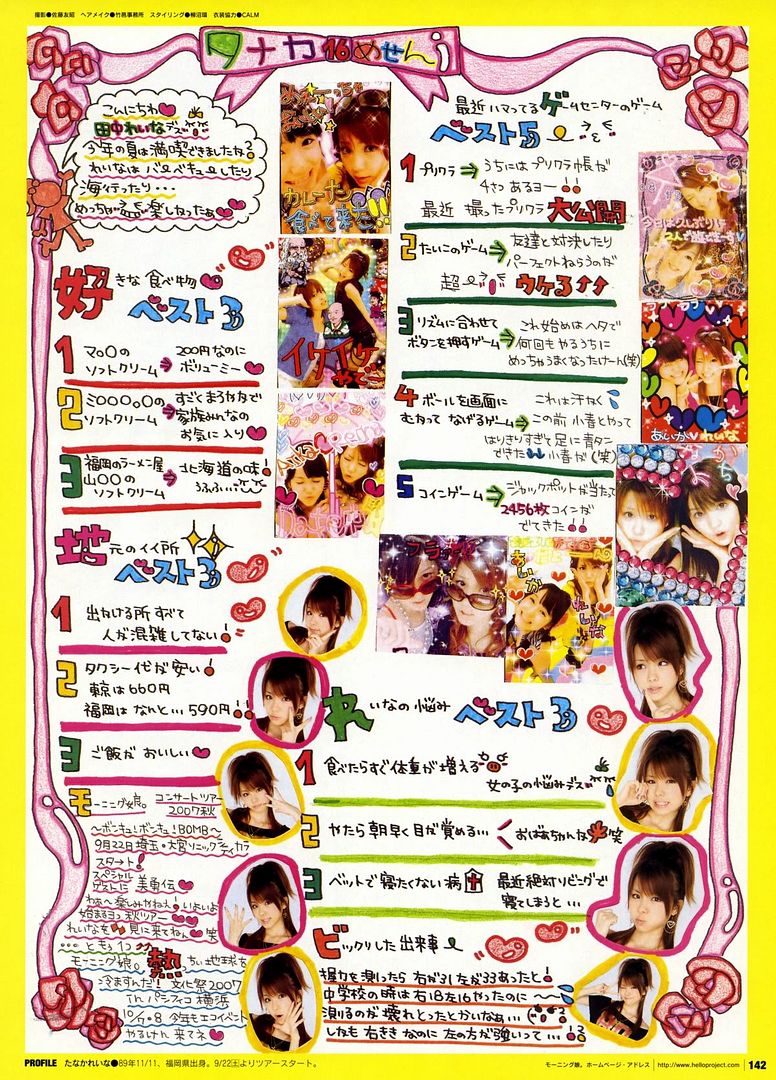 撮影●佐藤友昭 ヘアメイク●竹邑事務所 スタイリング●柳沼環 衣装協力●CALM
タナカ16めせん
こんにちわ
田中れいなデス
今年の夏は満喫できましたか?
れいなはバーベキューしたり
海行ったり・・・
めっちゃ楽しかったぁ
好きな食べ物
ベスト3
1 マ○○の
ソフトクリーム
200円なのに
ボリューミー
2 ミ○○○。○の
ソフトクリーム
すごくまろやかで
家族みんなの
お気に入り
3 福岡のラーメン屋
山○○の
ソフトクリーム
北海道の味!
うふふ…
地元のイイ所
ベスト3
1 出かける所すべて
人が混雑してない!
2 タクシー代が安い!
東京は660円
福岡はなんと…590円!!
3 ご飯がおいしい
モーニング娘。コンサートツアー
2007秋
～ボンキュ!ボンキュ!BOMB～
9月22日埼玉・大宮ソニックシティから
スタート!
スペシャル
ゲストに美勇伝
わぁー楽しみやねえ!いよいよ
始まるヨっ秋ツアー
れいなを見に来てねん 笑
…ともう1コ
モーニング娘。熱っちい地球を
冷ますんだ!文化祭2007
inパシフィコ横浜
10/7・8 今年もエコイベント
やるけん来てネ
最近ハマってるゲームセンターのゲーム
ベスト5
1 プリクラ
うちにはプリクラ帳が
4つあるヨー!!
最近撮ったプリクラ大公開
2 たいこのゲーム
友達と対決したり
パーフェクトねらうのだ
超ウケる↑↑
3 リズムに合わせて
ボタンを押すゲーム
これ始めはヘタで
何回もやるうちに
めっちゃうまくなったけーん(笑)
4 ボールを画面に
むかってなげるゲーム
これは汗かく
この前小春とやって
はりきりすぎて足に青タン
できたw小春が(笑)
5 コインゲーム
ジャックポットが当たって
2456枚コインが
でてきた!!
カレーナン
食べて来た!!
イケイケ
やで
あいか
れいな
れいなの悩み
ベスト3
1 食べたらすぐ体重が増える
女の子の悩みデス
2 やたら朝早く目が覚める…
おばあちゃんかな笑
3 ベットで寝たくない病
最近絶対リビングで
寝てしまうと…
ビックリした出来事
握力を測ったら右が31左が33あったと!
中学校の時は右18左16やったのに～～
測るのが壊れとったとかいなぁ…
しかも右ききなのに左の方が強いって…!?
PROFILE たなかれいな●89年11/11、福岡県出身。9/22(土)よりツアースタート。
モーニング娘。ホームページ・アドレス http://www.helloproject.com/ 142